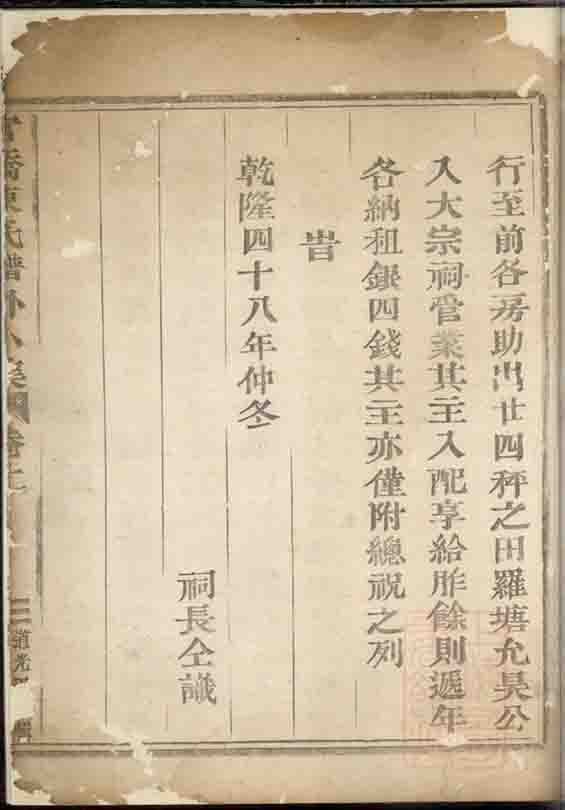 行至前各房助出廿四秤之田羅塘允昊公
入大宗祠管業其主入配享給胙餘則遞年
各納租銀四錢其主亦僅附總祝之列
旹
乾隆四十八年仲冬
祠長仝識
橋東氏譜
卷
三
道光